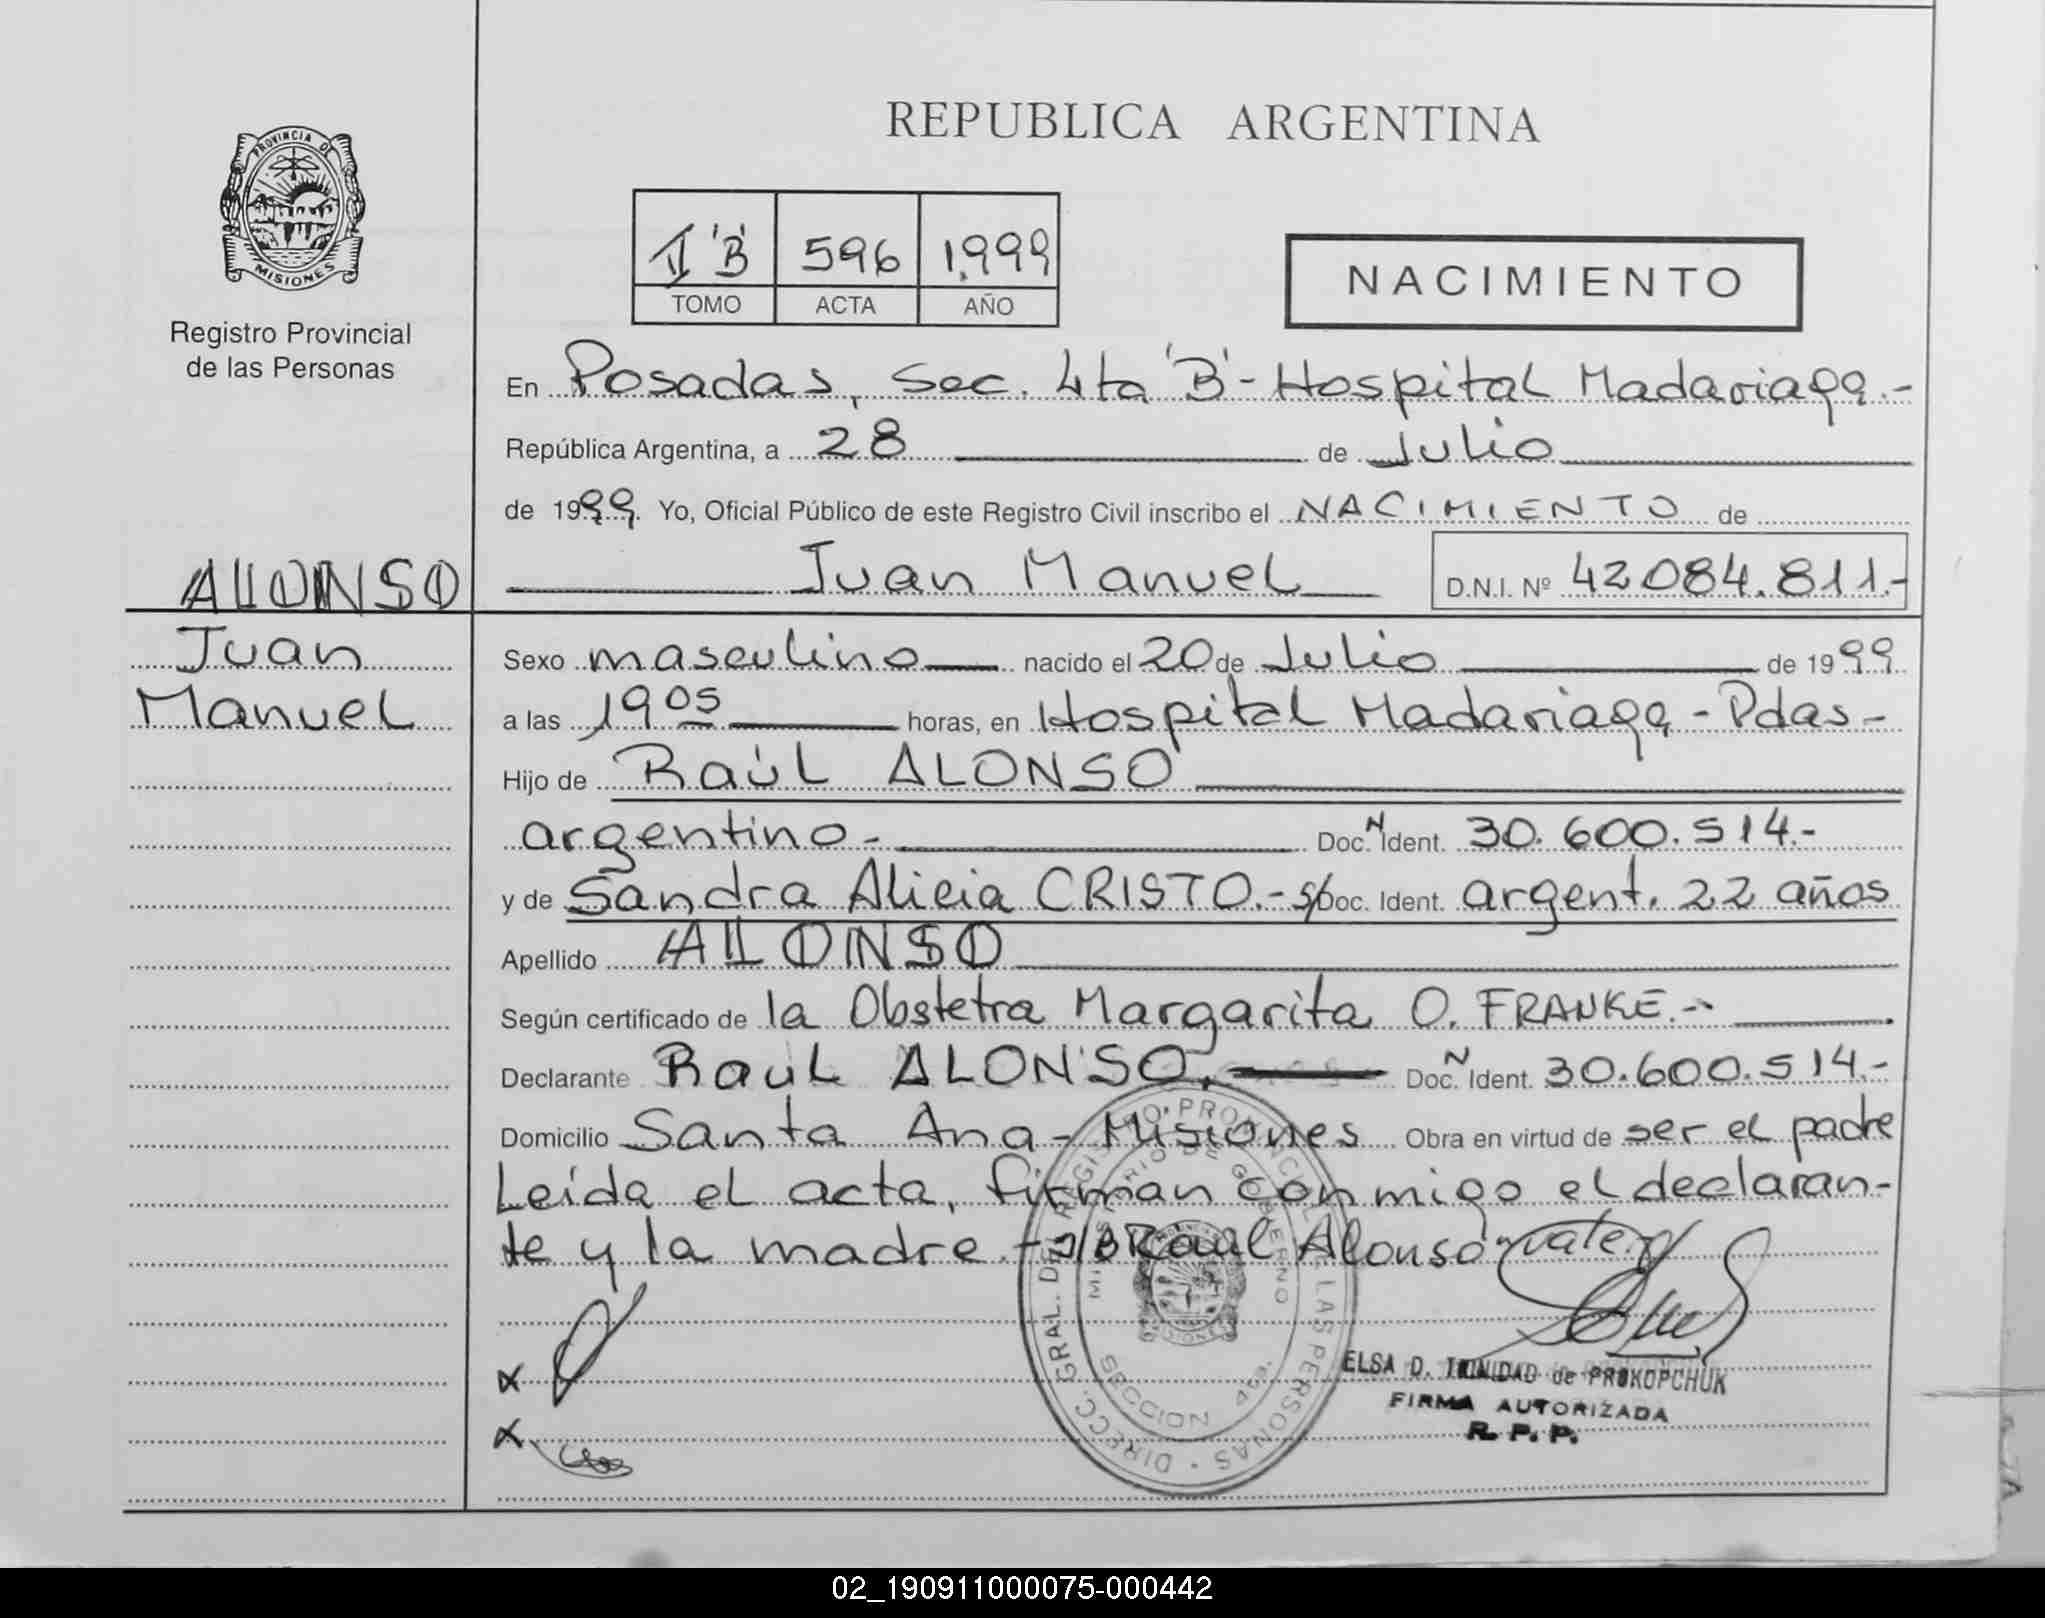 REPUBLICA ARGENTINA
PROVINCIA DE
MISIONES
Registro Provincial
de las Personas
II 'B' 596 1.999
TOMO ACTA AÑO
NACIMIENTO
En Posadas, Sec. 4ta 'B' - Hospital Madariaga.-
República Argentina, a 28 de Julio
de 1999. Yo, Oficial Público de este Registro Civil inscribo el NACIMIENTO de
Juan Manuel D.N.I. Nº 42084.811.-
ALONSO
Juan
Manuel
Sexo masculino nacido el 20 de Julio de 1999
a las 19 05 horas, en Hospital Madariaga - Pdas-
Hijo de Raúl ALONSO
argentino - Doc. N Ident. 30.600.514.-
y de Sandra Alicia CRISTO.- s/Doc. Ident. argent. 22 años
Apellido ALONSO
Según certificado de la Obstetra Margarita O. FRANKE.-
Declarante Raul ALONSO. Doc. N Ident. 30.600.514.-
Domicilio Santa Ana - Misiones Obra en virtud de ser el padre
Leída el acta, firman conmigo el declaran-
te y la madre.- s/B Raúl Alonso "vale"
DIRECC. GRAL. DEL REGISTRO PROVINCIAL DE LAS PERSONAS
MINISTERIO DE GOBIERNO
SECCION 4ta.
MISIONES
x
x
ELSA D. TRINIDAD de PROKOPCHUK
FIRMA AUTORIZADA
R. P. P.
02_190911000075-000442